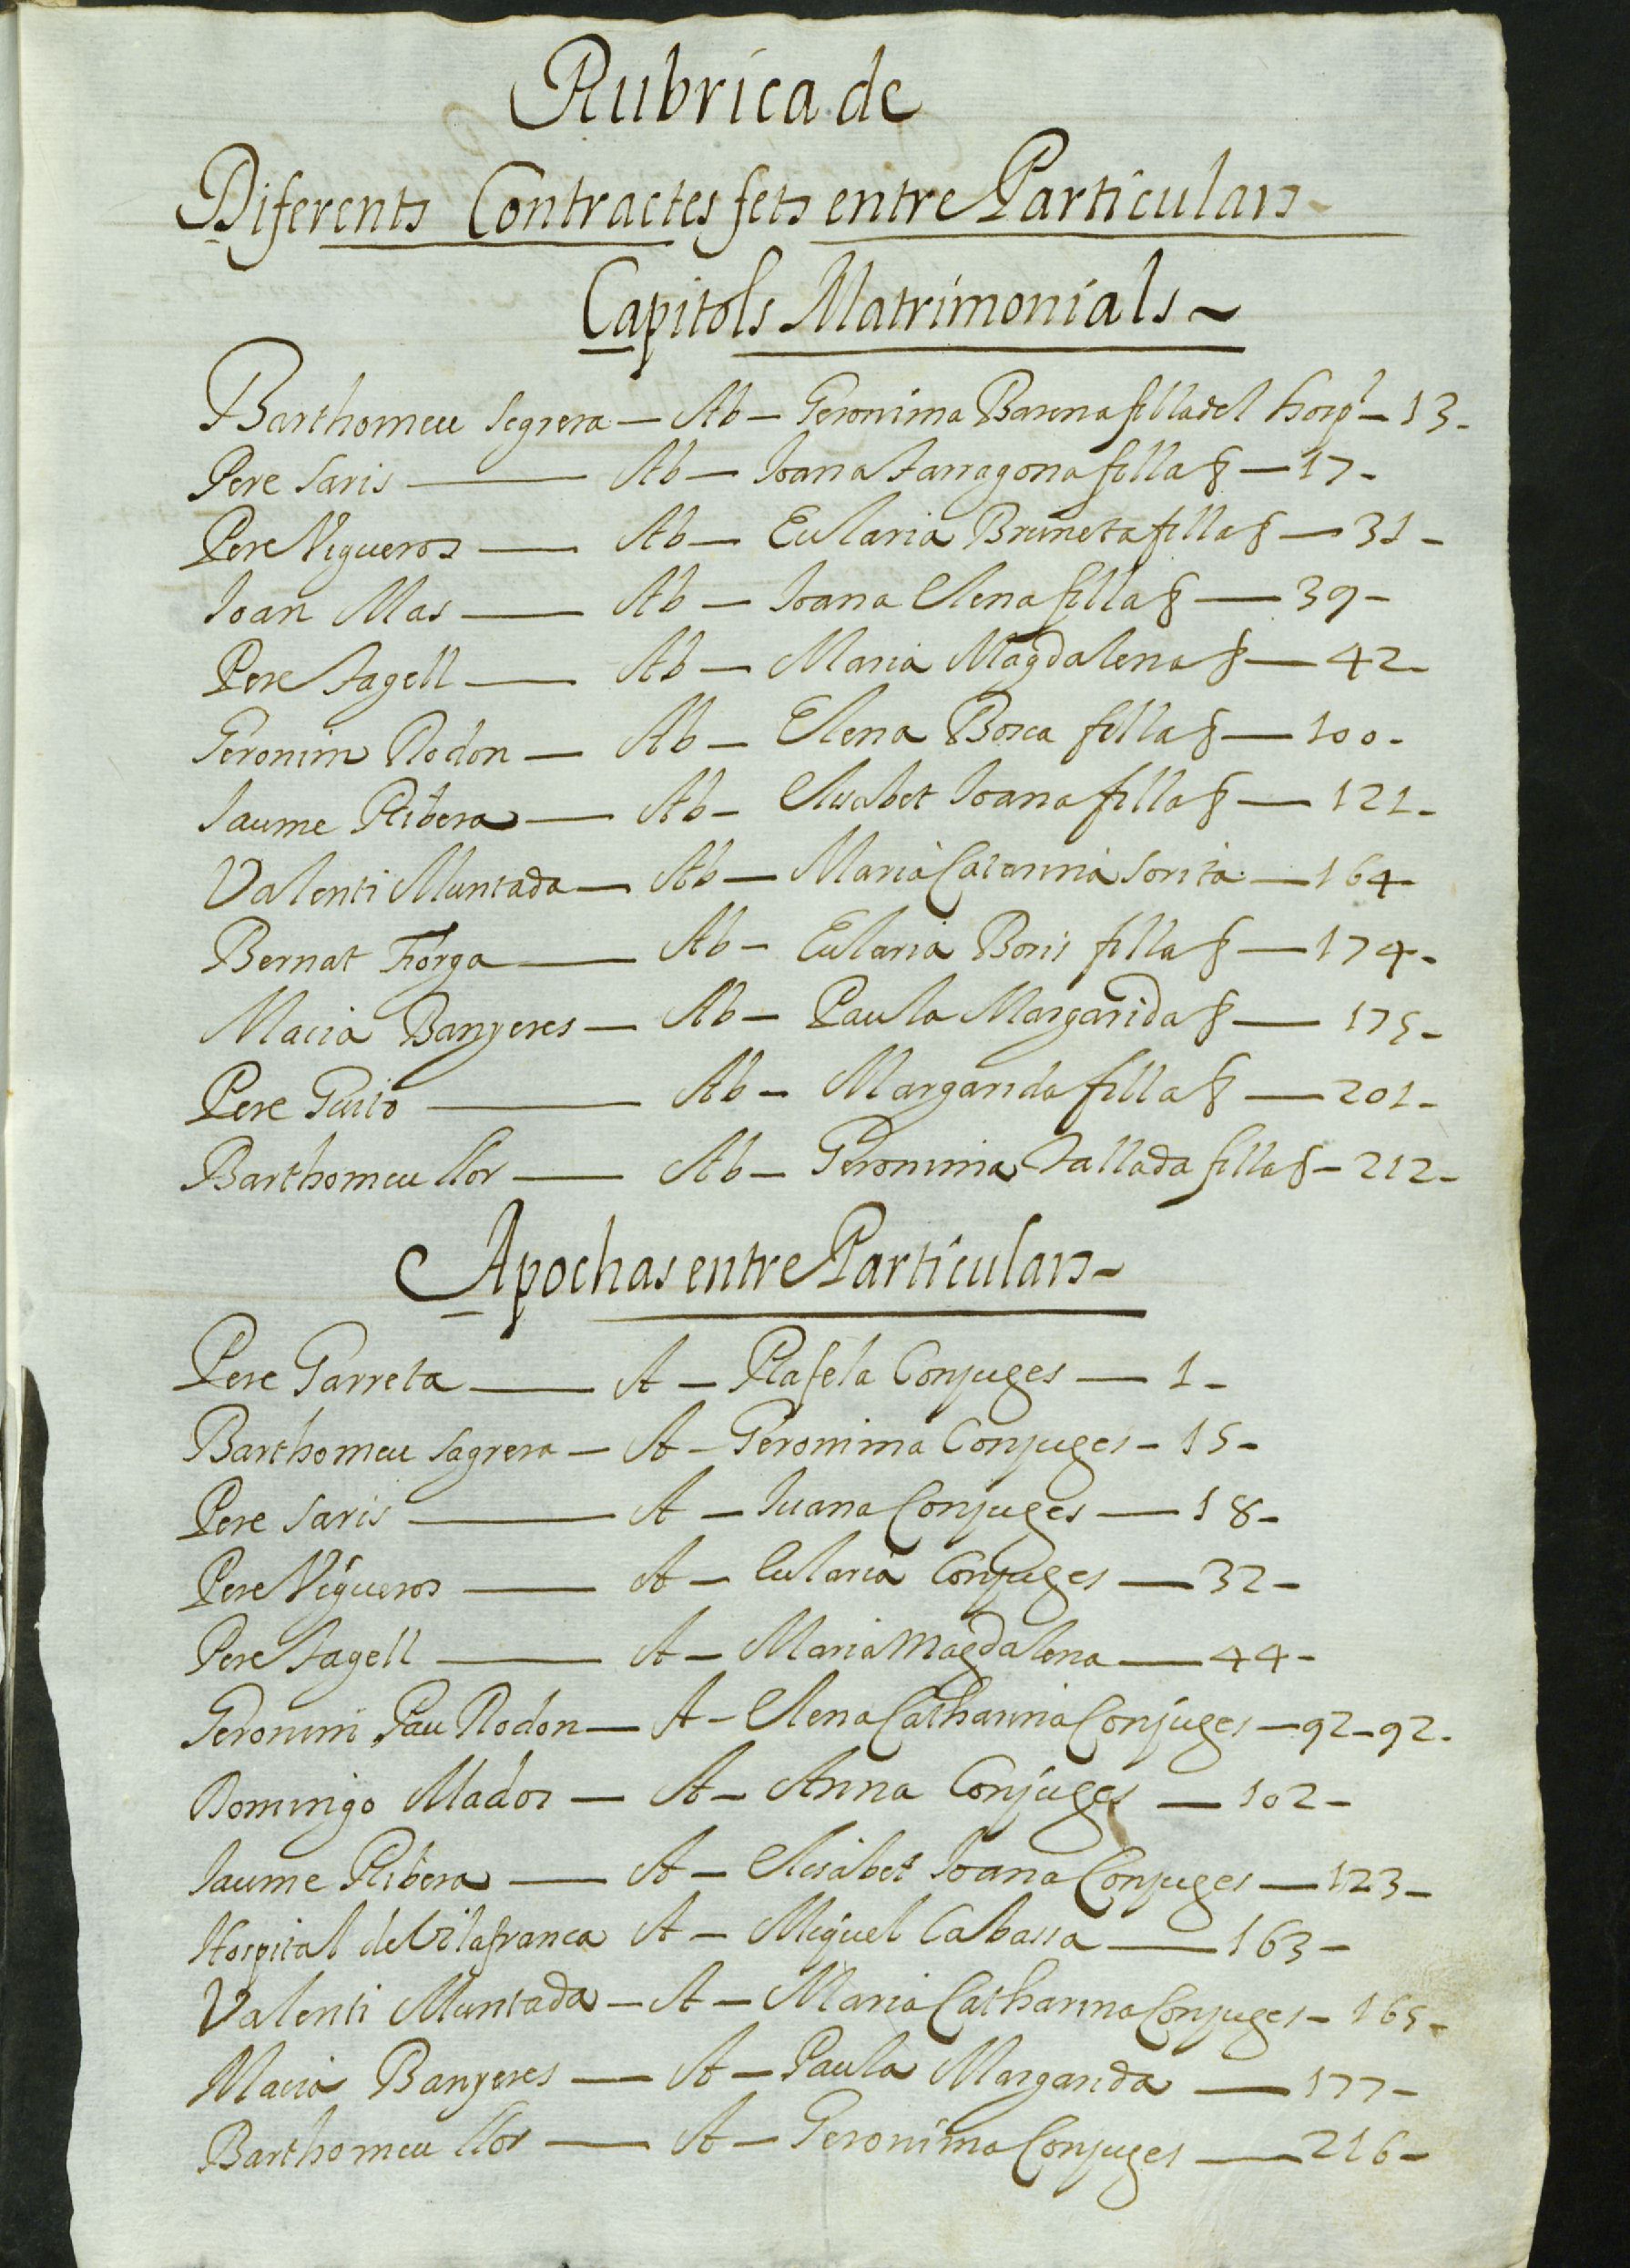 Rubrica de
Diferents Contractes fets entre Particulars
Capitols Matrimonials ~
Barthomeu Segrera — Ab — Geronima Barena filla del hospl — 13 -
Pere Saris — Ab — Joana Tarragona filla § — 17 -
Pere Vigueros — Ab — Eularia Bruneta filla § — 31 -
Joan Mas — Ab — Joana Elena filla § — 39 -
Pere Tagell — Ab — Maria Magdalena § — 42 -
Geronim Rodon — Ab — Elena Borca filla § — 100 -
Jaume Ribera — Ab — Elisabet Joana filla § — 121 -
Valenti Muntada — Ab — Maria Catarina Sorita — 164
Bernat Forga — Ab — Eularia Boris filla § — 174 -
Macia Banyeres — Ab — Paula Margarida § — 175 -
Pere — Ab — Margarida filla § — 201 -
Barthomeu llor — Ab — Geronima Tallada filla § — 212 -
Apochas entre Particulars -
Pere Garreta — A — Rafela Conjuges — 1 -
Barthomeu Sagrera — A — Geronima Conjuges — 15 -
Pere Saris — A — Juana Conjuges — 18 -
Pere Vigueros — A — Eularia Conjuges — 32 -
Pere Tagell — A — Maria Magdalena — 44 -
Geronim Pau Rodon — A — Elena Catharina Conjuges — 92 - 92 -
Domingo Mador — A — Anna Conjuges — 102 -
Jaume Ribera — A — Elisabet Joana Conjuges — 123 -
Hospital de Vilafranca A — Miquel Cabassa — 163 -
Valenti Muntada — A — Maria Catharina Conjuges — 165 -
Macia Banyeres — A — Paula Margarida — 177 -
Barthomeu llor — A — Geronima Conjuges — 216 -